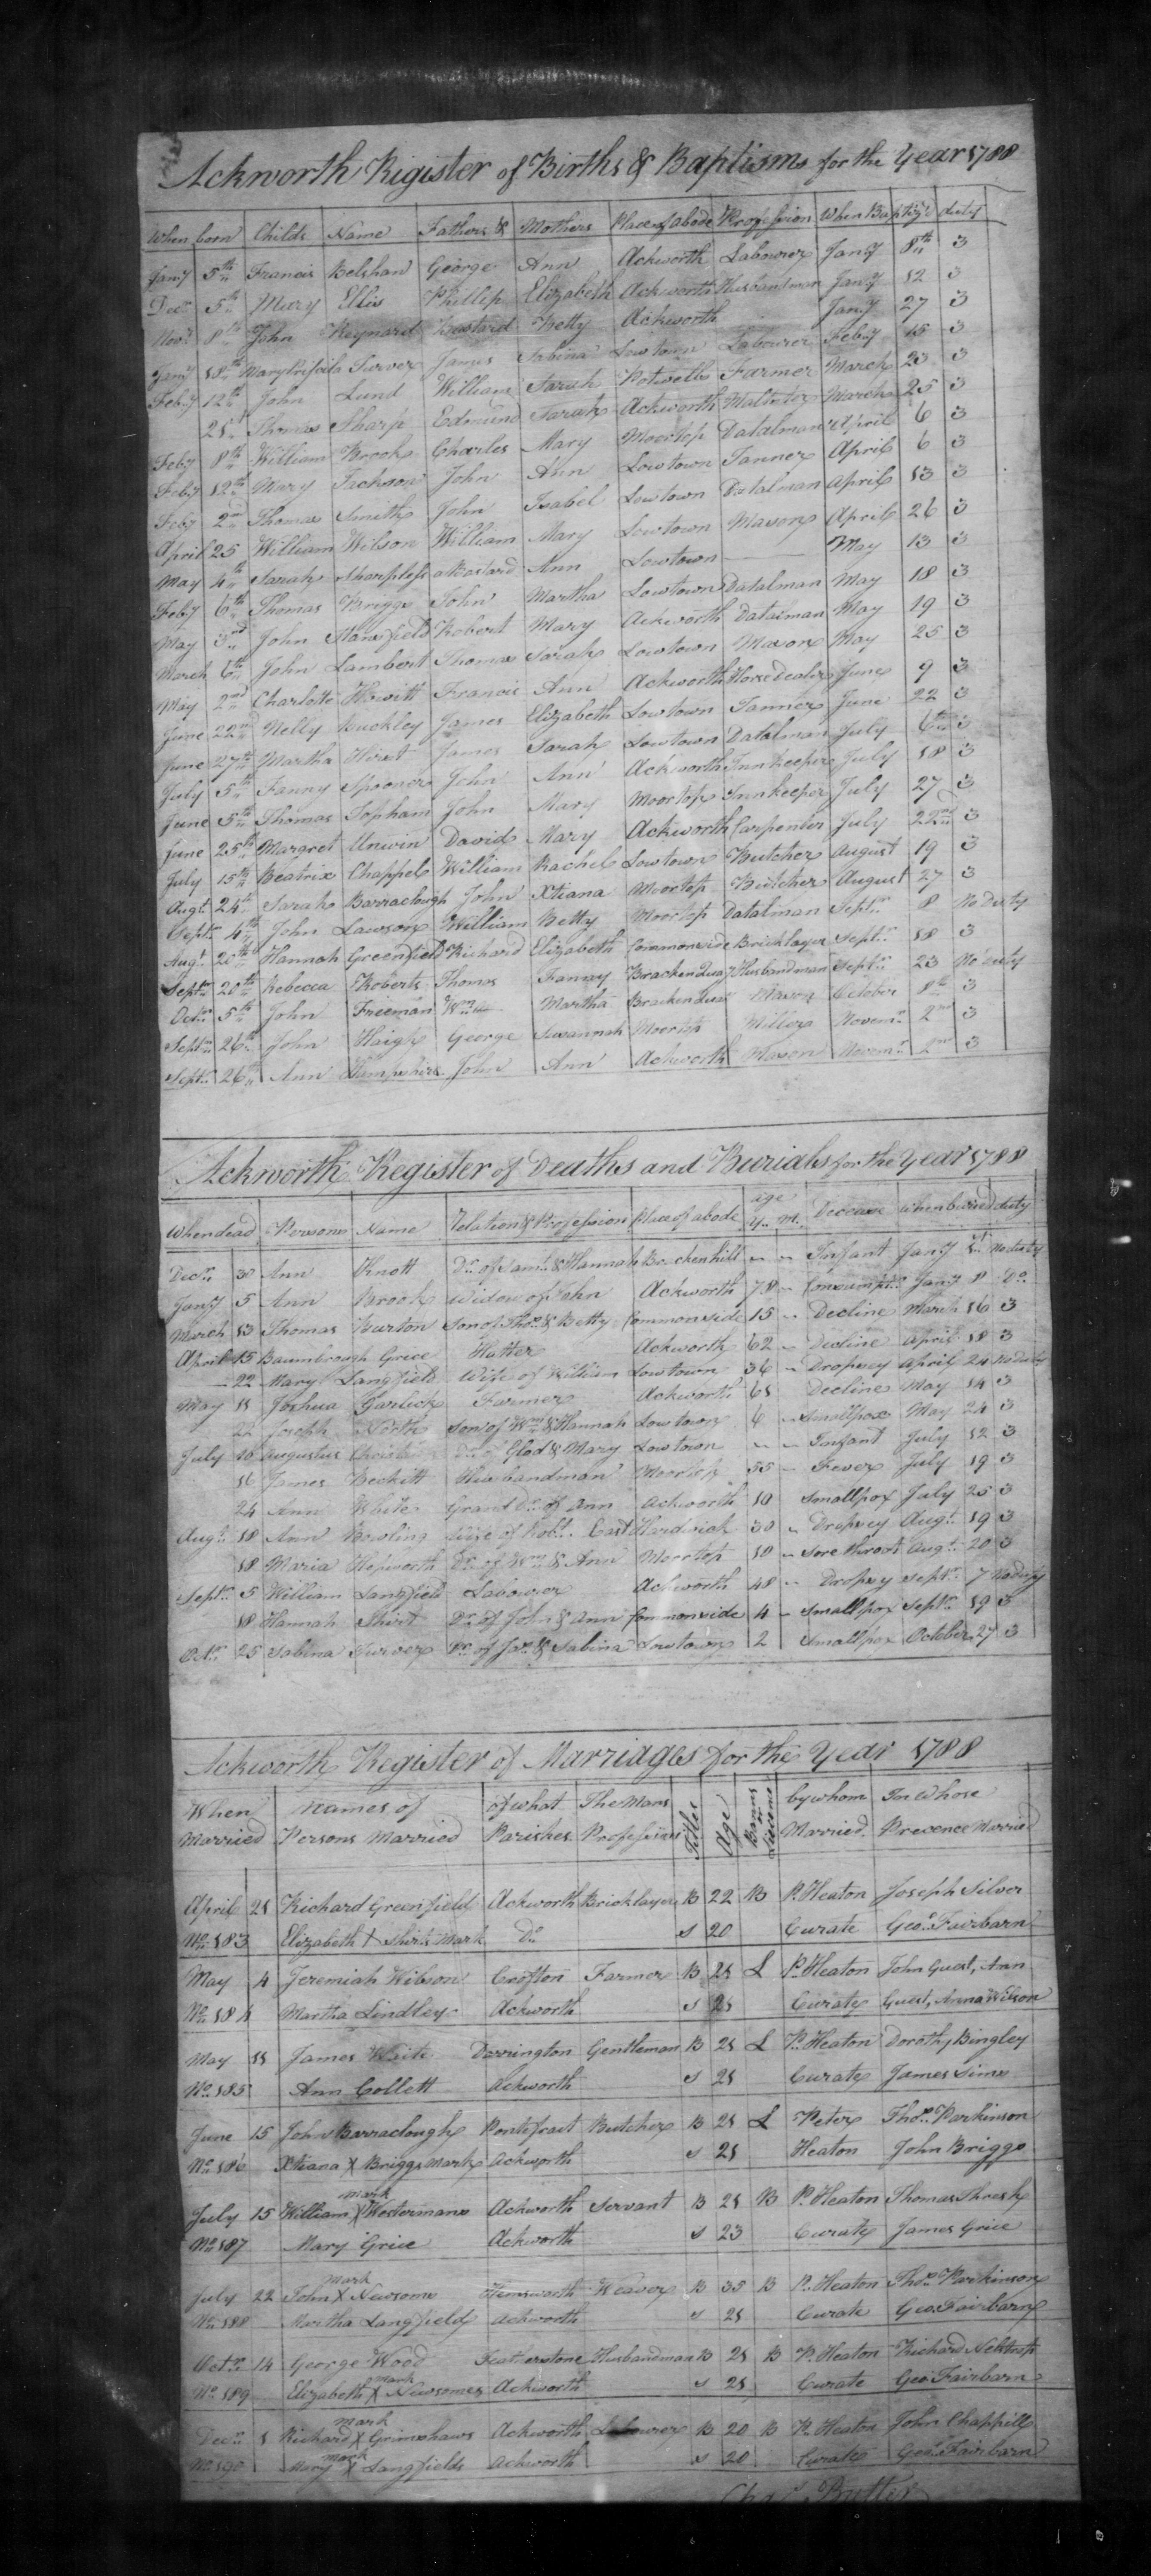 Ackworth Rigister of Births & Baptisms for the Year 1788
When born Childs Name Fathers & Mothers Place of abode Profession When Baptiz'd duty
Jany 5th Francis Belshaw George Ann Ackworth Labourer Jany 8th 3
Decr 5th Mary Ellis Phillip Elizabeth Ackworth Husbandman Jany 12 3
Novr 8th John Reynard Bastard Betty Ackworth Jany 27 3
Jany 18th Mary Priscila Turver James Sabina Lowtown Labourer Feby 15 3
Feby 12th John Lund William Sarah Potwells Farmer March 23 3
21 Thomas Sharp Edmund Sarah Ackworth Maltster March 25 3
Feby 8th William Brook Charles Mary Moortop Datalman April 6 3
Feby 12th Mary Jackson John Ann Lowtown Tanner April 6 3
Feby 2nd Thomas Smith John Isabel Lowtown Datalman April 13 3
April 25 William Wilson William Mary Lowtown Mason April 26 3
May 4th Sarah Sharpless a Bastard Ann Lowtown May 13 3
Feby 6th Thomas Briggs John Martha Lowtown Datalman May 18 3
May 3rd John Mansfield Robert Mary Ackworth Datalman May 19 3
March 6th John Lambert Thomas Sarah Lowtown Mason May 25 3
May 2nd Charlotte Howitt Francis Ann Ackworth Horse Dealer June 9 3
June 22nd Nelly Buckley James Elizabeth Lowtown Tanner June 22 3
June 27th Martha Hirst James Sarah Lowtown Datalman July 6th 3
July 5th Fanny Spooner John Ann Ackworth Innkeeper July 18 3
June 5th Thomas Topham John Mary Moortop Innkeeper July 27 3
June 25th Margret Unwin David Mary Ackworth Carpenter July 22nd 3
July 15th Beatrix Chappel William Rachel Lowtown Butcher August 19 3
Augt 24th Sarah Barraclough John Xtiana Moortop Butcher August 27 3
Septr 4th John Lawson William Betty Moortop Datalman Septr 8 No duty
Augt 20th Hannah Greenfield Richard Elizabeth Commonside Bricklayer Septr 18 3
Septr 20th Rebecca Roberts Thomas Fanny Brackenquay Husbandman Septr 23 No duty
Octr 5th John Freeman Wm Martha Mason October 8th 3
Septr 26th John Haigh George Susannah Moortop Miller Novemr 2nd 3
Septr 26th Ann Hampshire John Ann Ackworth Mason Novemr 2nd 3
Ackworth Register of Deaths and Burials for the Year 1788
When dead Persons Name Relation & Profession Place of abode age Y. M. Decease when buried duty
Decr 30 Ann Knott Dr of Saml & Hannah Brackenhill - - Infant Jany 1st No duty
Jany 5 Ann Brook Widow of John Ackworth 78 - Consumptn Jany 8 Do
March 13 Thomas Burton Son of Thos & Betty Commonside 15 - Decline March 16 3
April 15 Baumbrough Grice Hatter Ackworth 62 - Decline April 18 3
- 22 Mary Langfield Wife of William Lowtown 36 - Dropsey April 24 No duty
May 11 Joshua Garlick Farmer Ackworth 61 Decline May 14 3
22 Joseph North Son of Wm & Hannah Lowtown 6 - Smallpox May 24 3
July 10 Augustus of Glod & Mary Lowtown - - Infant July 12 3
16 James Beckitt Husbandman Moortop 55 - Fever July 19 3
24 Ann White Grand Dr of Ann Ackworth 10 Smallpox July 25 3
Augt 18 Ann Bowling Wife of Robt East Hardwick 30 - Dropsey Augt 19 3
18 Maria Hepworth Dr of Wm & Ann Moortop 10 - Sore throat Augt 20 3
Septr 5 William Langfield Labourer Ackworth 48 - Dropsy Septr 7 No duty
18 Hannah Shirt Dr of John & Ann Commonside 4 - Smallpox Septr 19 3
Octr 25 Sabina Turver Dr of Jas & Sabina Lowtown 2 Smallpox October 27 3
Ackworth Register of Marriages for the Year 1788
When Married Names of Persons Married of what Parishes The Mans Profession Titles Age Banns or License by whom Married In Whose Precence Married
April 21 Richard Greenfield Ackworth Bricklayer B 22 B P. Heaton Joseph Silver
No 183 Elizabeth X Shirts Mark Do S 20 Curate Geo. Fairbarn
May 4 Jeremiah Wibson Crofton Farmer B 21 L P. Heaton John Guest, Ann
No 184 Martha Lindley Ackworth S 21 Curate Guest, Anna Wilson
May 11 James Waite Darrington Gentleman B 21 L P. Heaton Dorothy Bingley
No 185 Ann Collett Ackworth S 21 Curate James Sims
June 15 John Barraclough Pontefract Butcher B 21 L Peter Thos Parkinson
No 186 Xtiana X Briggs Mark Ackworth S 21 Heaton John Briggs
July 15 William X mark Westerman Ackworth Servant B 21 B P. Heaton Thomas Thresh
No 187 Mary Grice Ackworth S 23 Curate James Grice
July 22 John X mark Newsome Hemsworth Weaver B 35 B P. Heaton Thos Parkinson
No 188 Martha Langfield Ackworth S 21 Curate Geo. Fairbarn
Octr 14 George Wood Featherstone Husbandman B 21 B P. Heaton Richard
No 189 Elizabeth X mark Newsomes Ackworth S 21 Curate Geo. Fairbarn
Decr 1 Richard X mark Grimshaws Ackworth Labourer B 20 B P. Heaton John Chappill
No 190 Mary X mark Langfields Ackworth S 20 Curate Geo. Fairbarn